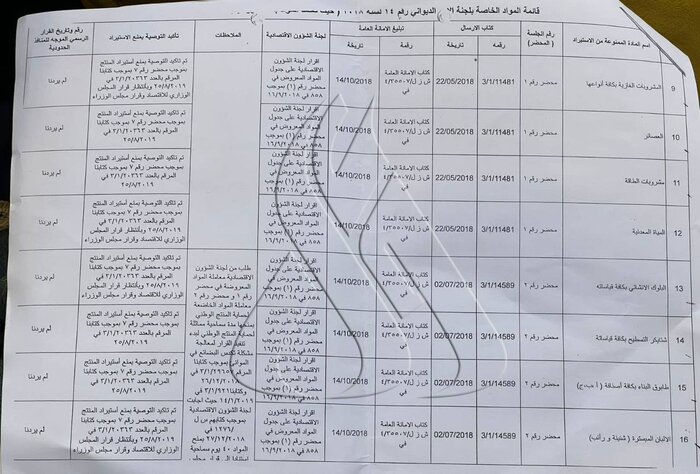 قائمة المواد الخاصة بلجنة الديواني رقم ١٤ لسنة ٢٠١٨
اسم المادة الممنوعة من الاستيراد
رقم الجلسة (المحضر)
كتاب الارسال
رقمه
تاريخه
تبليغ الامانة العامة
رقمه
تاريخه
لجنة الشؤون الاقتصادية
الملاحظات
تأكيد التوصية بمنع الاستيراد
القرار الرسمي الموجه للمنافذ الحدودية
9
المشروبات الغازية بكافة أنواعها
محضر رقم ١
3/1/11481
22/05/2018
كتاب الامانة العامة
ش ز ل/٤/٣٥٠٠٧
في
14/10/2018
اقرار لجنة الشؤون
الاقتصادية على جدول
المواد المعروض في
محضر رقم (١) بموجب
٨٥٨ في ١٦/٩/٢٠١٨
تم تاكيد التوصية بمنع أستيراد المنتج
بموجب محضر رقم ٧ بموجب كتابنا
المرقم بالعدد ٣/١/٢٠٣٦٣ في
٢٥/٨/٢٠١٩ وبأنتظار قرار المجلس
الوزاري للاقتصاد وقرار مجلس الوزراء
لم يردنا
10
العصائر
محضر رقم ١
3/1/11481
22/05/2018
كتاب الامانة العامة
ش ز ل/٤/٣٥٠٠٧
في
14/10/2018
اقرار لجنة الشؤون
الاقتصادية على جدول
المواد المعروض في
محضر رقم (١) بموجب
٨٥٨ في ١٦/٩/٢٠١٨
تم تاكيد التوصية بمنع أستيراد المنتج
بموجب محضر رقم ٧ بموجب كتابنا
المرقم بالعدد ٣/١/٢٠٣٦٣ في
٢٥/٨/٢٠١٩
لم يردنا
11
مشروبات الطاقة
محضر رقم ١
3/1/11481
22/05/2018
كتاب الامانة العامة
ش ز ل/٤/٣٥٠٠٧
في
14/10/2018
اقرار لجنة الشؤون
الاقتصادية على جدول
المواد المعروض في
محضر رقم (١) بموجب
٨٥٨ في ١٦/٩/٢٠١٨
تم تاكيد التوصية بمنع أستيراد المنتج
بموجب محضر رقم ٧ بموجب كتابنا
المرقم بالعدد ٣/١/٢٠٣٦٣ في
٢٥/٨/٢٠١٩
لم يردنا
12
المياة المعدنية
محضر رقم ١
3/1/11481
22/05/2018
كتاب الامانة العامة
ش ز ل/٤/٣٥٠٠٧
في
14/10/2018
اقرار لجنة الشؤون
الاقتصادية على جدول
المواد المعروض في
محضر رقم (١) بموجب
٨٥٨ في ١٦/٩/٢٠١٨
تم تاكيد التوصية بمنع أستيراد المنتج
بموجب محضر رقم ٧ بموجب كتابنا
المرقم بالعدد ٣/١/٢٠٣٦٣ في
٢٥/٨/٢٠١٩ وبأنتظار قرار المجلس
الوزاري للاقتصاد وقرار مجلس الوزراء
لم يردنا
13
البلوك الانشائي بكافة قياساته
محضر رقم ٢
3/1/14589
02/07/2018
كتاب الامانة العامة
ش ز ل/٤/٣٥٠٠٧
في
14/10/2018
اقرار لجنة الشؤون
الاقتصادية على جدول
المواد المعروض في
محضر رقم (١) بموجب
٨٥٨ في ١٦/٩/٢٠١٨
طلب من لجنة الشؤون
الاقتصادية معاملة المواد
المعروضة في محضر
رقم ١ و محضر رقم ٢
معاملة المواد الخاضعة
لحماية المنتج الوطني
بمنحها مدة سماحية مماثلة
لحماية المنتج الوطني لبدء
تنفيذ القرار لمعالجة
مشكلة تكدس البضائع في
الموانئ بموجب كتابنا
٣/١/٢٩٦٥٧ في
٢٦/١٢/٢٠١٨
وكتابنا ٣/١/٩٢١ في
١٤/١/٢٠١٩ حيث اجابت
لجنة الشؤون الاقتصادية
بموجب كتابهم س.ل
١٢٧٦/ في ٢٧/١٢/٢٠١٨
المواد ٤٠ يوم سماحية
تم تاكيد التوصية بمنع أستيراد المنتج
بموجب محضر رقم ٧ بموجب كتابنا
المرقم بالعدد ٣/١/٢٠٣٦٣ في
٢٥/٨/٢٠١٩ وبأنتظار قرار المجلس
الوزاري للاقتصاد وقرار مجلس الوزراء
لم يردنا
14
شتايكر التسطيح بكافة قياساته
محضر رقم ٢
3/1/14589
02/07/2018
كتاب الامانة العامة
ش ز ل/٤/٣٥٠٠٧
في
14/10/2018
اقرار لجنة الشؤون
الاقتصادية على جدول
المواد المعروض في
محضر رقم (١) بموجب
٨٥٨ في ١٦/٩/٢٠١٨
تم تاكيد التوصية بمنع أستيراد المنتج
بموجب محضر رقم ٧ بموجب كتابنا
المرقم بالعدد ٣/١/٢٠٣٦٣ في
٢٥/٨/٢٠١٩
لم يردنا
15
طابوق البناء بكافة أصنافه (أ،ب،ج)
محضر رقم ٢
3/1/14589
02/07/2018
كتاب الامانة العامة
ش ز ل/٤/٣٥٠٠٧
في
14/10/2018
اقرار لجنة الشؤون
الاقتصادية على جدول
المواد المعروض في
محضر رقم (١) بموجب
٨٥٨ في ١٦/٩/٢٠١٨
تم تاكيد التوصية بمنع أستيراد المنتج
بموجب محضر رقم ٧ بموجب كتابنا
المرقم بالعدد ٣/١/٢٠٣٦٣ في
٢٥/٨/٢٠١٩
لم يردنا
16
الالبان المبسترة (شنينة و رائب)
محضر رقم ٢
3/1/14589
02/07/2018
كتاب الامانة العامة
ش ز ل/٤/٣٥٠٠٧
في
14/10/2018
اقرار لجنة الشؤون
الاقتصادية على جدول
المواد المعروض في
محضر رقم (١) بموجب
٨٥٨ في ١٦/٩/٢٠١٨
تم تاكيد التوصية بمنع أستيراد المنتج
بموجب محضر رقم ٧ بموجب كتابنا
المرقم بالعدد ٣/١/٢٠٣٦٣ في
٢٥/٨/٢٠١٩ وبأنتظار قرار المجلس
الوزاري للاقتصاد وقرار مجلس الوزراء
لم يردنا